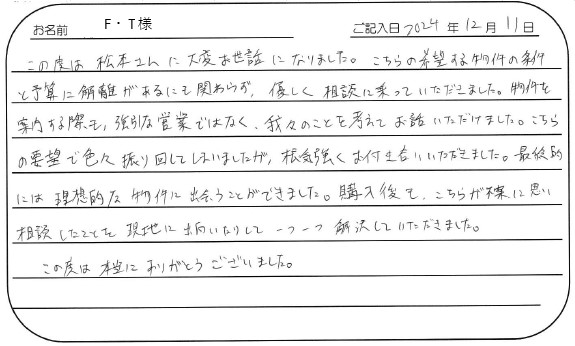 お名前 F・T様 ご記入日 2024年 12月 11日
この度は松本さんに大変お世話になりました。こちらの希望する物件の条件
と予算に解離があるにも関わらず、優しく相談に乗っていただきました。物件を
案内する際も、強引な営業ではなく、我々のことを考えてお話いただけました。こちら
の要望で色々振り回してしまいましたが、根気強くお付き合いいただきました。最終的
には理想的な物件に出会うことができました。購入後も、こちらが不安に思い
相談したことを現地に出向いたりして一つ一つ解決していただきました。
この度は本当にありがとうございました。